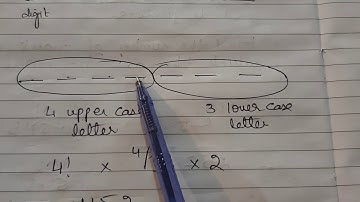 digit
4 upper case 3 lower case
letter letter
4! × 4/ × 2